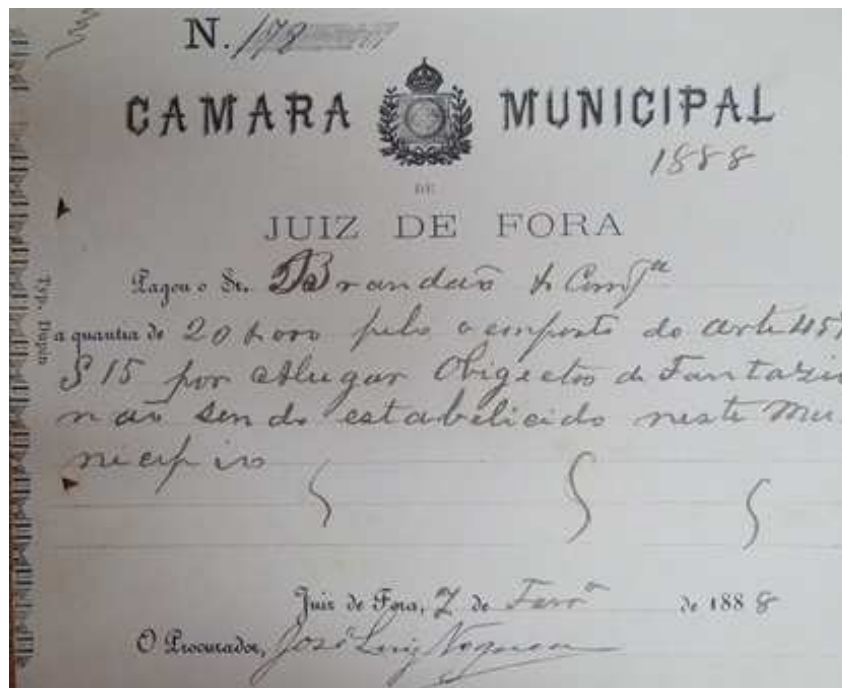 N. 178
CAMARA MUNICIPAL
1888
DE
JUIZ DE FORA
Pagou o Sr. Brandaõ & Comp.ª
a quantia de 20$000 pelo o emposto do arte 45
§ 15 por Alugar Obigectos de Fantazia
naõ sendo estabelicido neste Mu
necipio
Juiz de Fora, 7 de Fevrº de 1888
O Procurador, José Luiz
Typ. Dupin